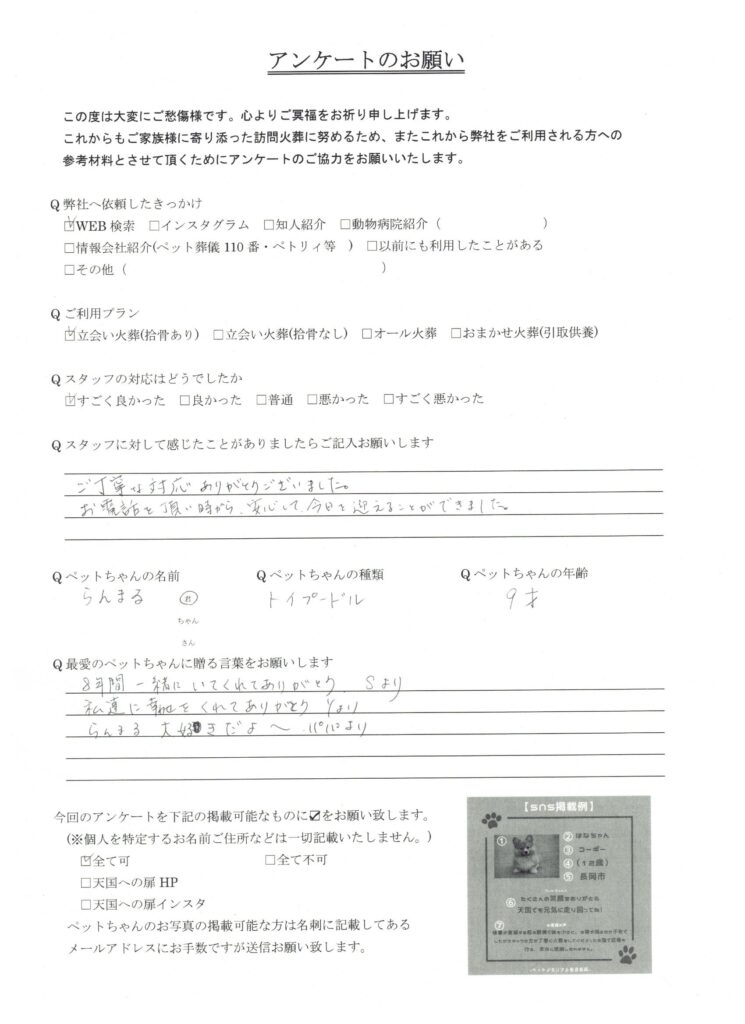 アンケートのお願い
この度は大変にご愁傷様です。心よりご冥福をお祈り申し上げます。
これからもご家族様に寄り添った訪問火葬に努めるため、またこれから弊社をご利用される方への
参考材料とさせて頂くためにアンケートのご協力をお願いいたします。
Q 弊社へ依頼したきっかけ
☑WEB 検索 □インスタグラム □知人紹介 □動物病院紹介（ ）
□情報会社紹介(ペット葬儀 110 番・ペトリィ等 ) □以前にも利用したことがある
□その他（ ）
Q ご利用プラン
☑立会い火葬(拾骨あり) □立会い火葬(拾骨なし) □オール火葬 □おまかせ火葬(引取供養)
Q スタッフの対応はどうでしたか
☑すごく良かった □良かった □普通 □悪かった □すごく悪かった
Q スタッフに対して感じたことがありましたらご記入お願いします
ご丁寧な対応ありがとうございました。
お電話を頂い時から、安心して、今日を迎えることができました。
Q ペットちゃんの名前 Q ペットちゃんの種類 Q ペットちゃんの年齢
らんまる トイプードル 9才
ちゃん
さん
Q 最愛のペットちゃんに贈る言葉をお願いします
8年間 一緒に いてくれてありがとう Sより
私達に幸せをくれてありがとう Yより
らんまる 大好きだよ〜 パパより
今回のアンケートを下記の掲載可能なものに☑をお願い致します。
(※個人を特定するお名前ご住所などは一切記載いたしません。)
☑全て可 □全て不可
□天国への扉 HP
□天国への扉インスタ
ペットちゃんのお写真の掲載可能な方は名刺に記載してある
メールアドレスにお手数ですが送信お願い致します。
【sns掲載例】
① ② はなちゃん
③ コーギー
④ (12歳)
⑤ 長岡市
⑥ たくさんの笑顔をありがとう
天国でも元気に走り回ってね!
⑦